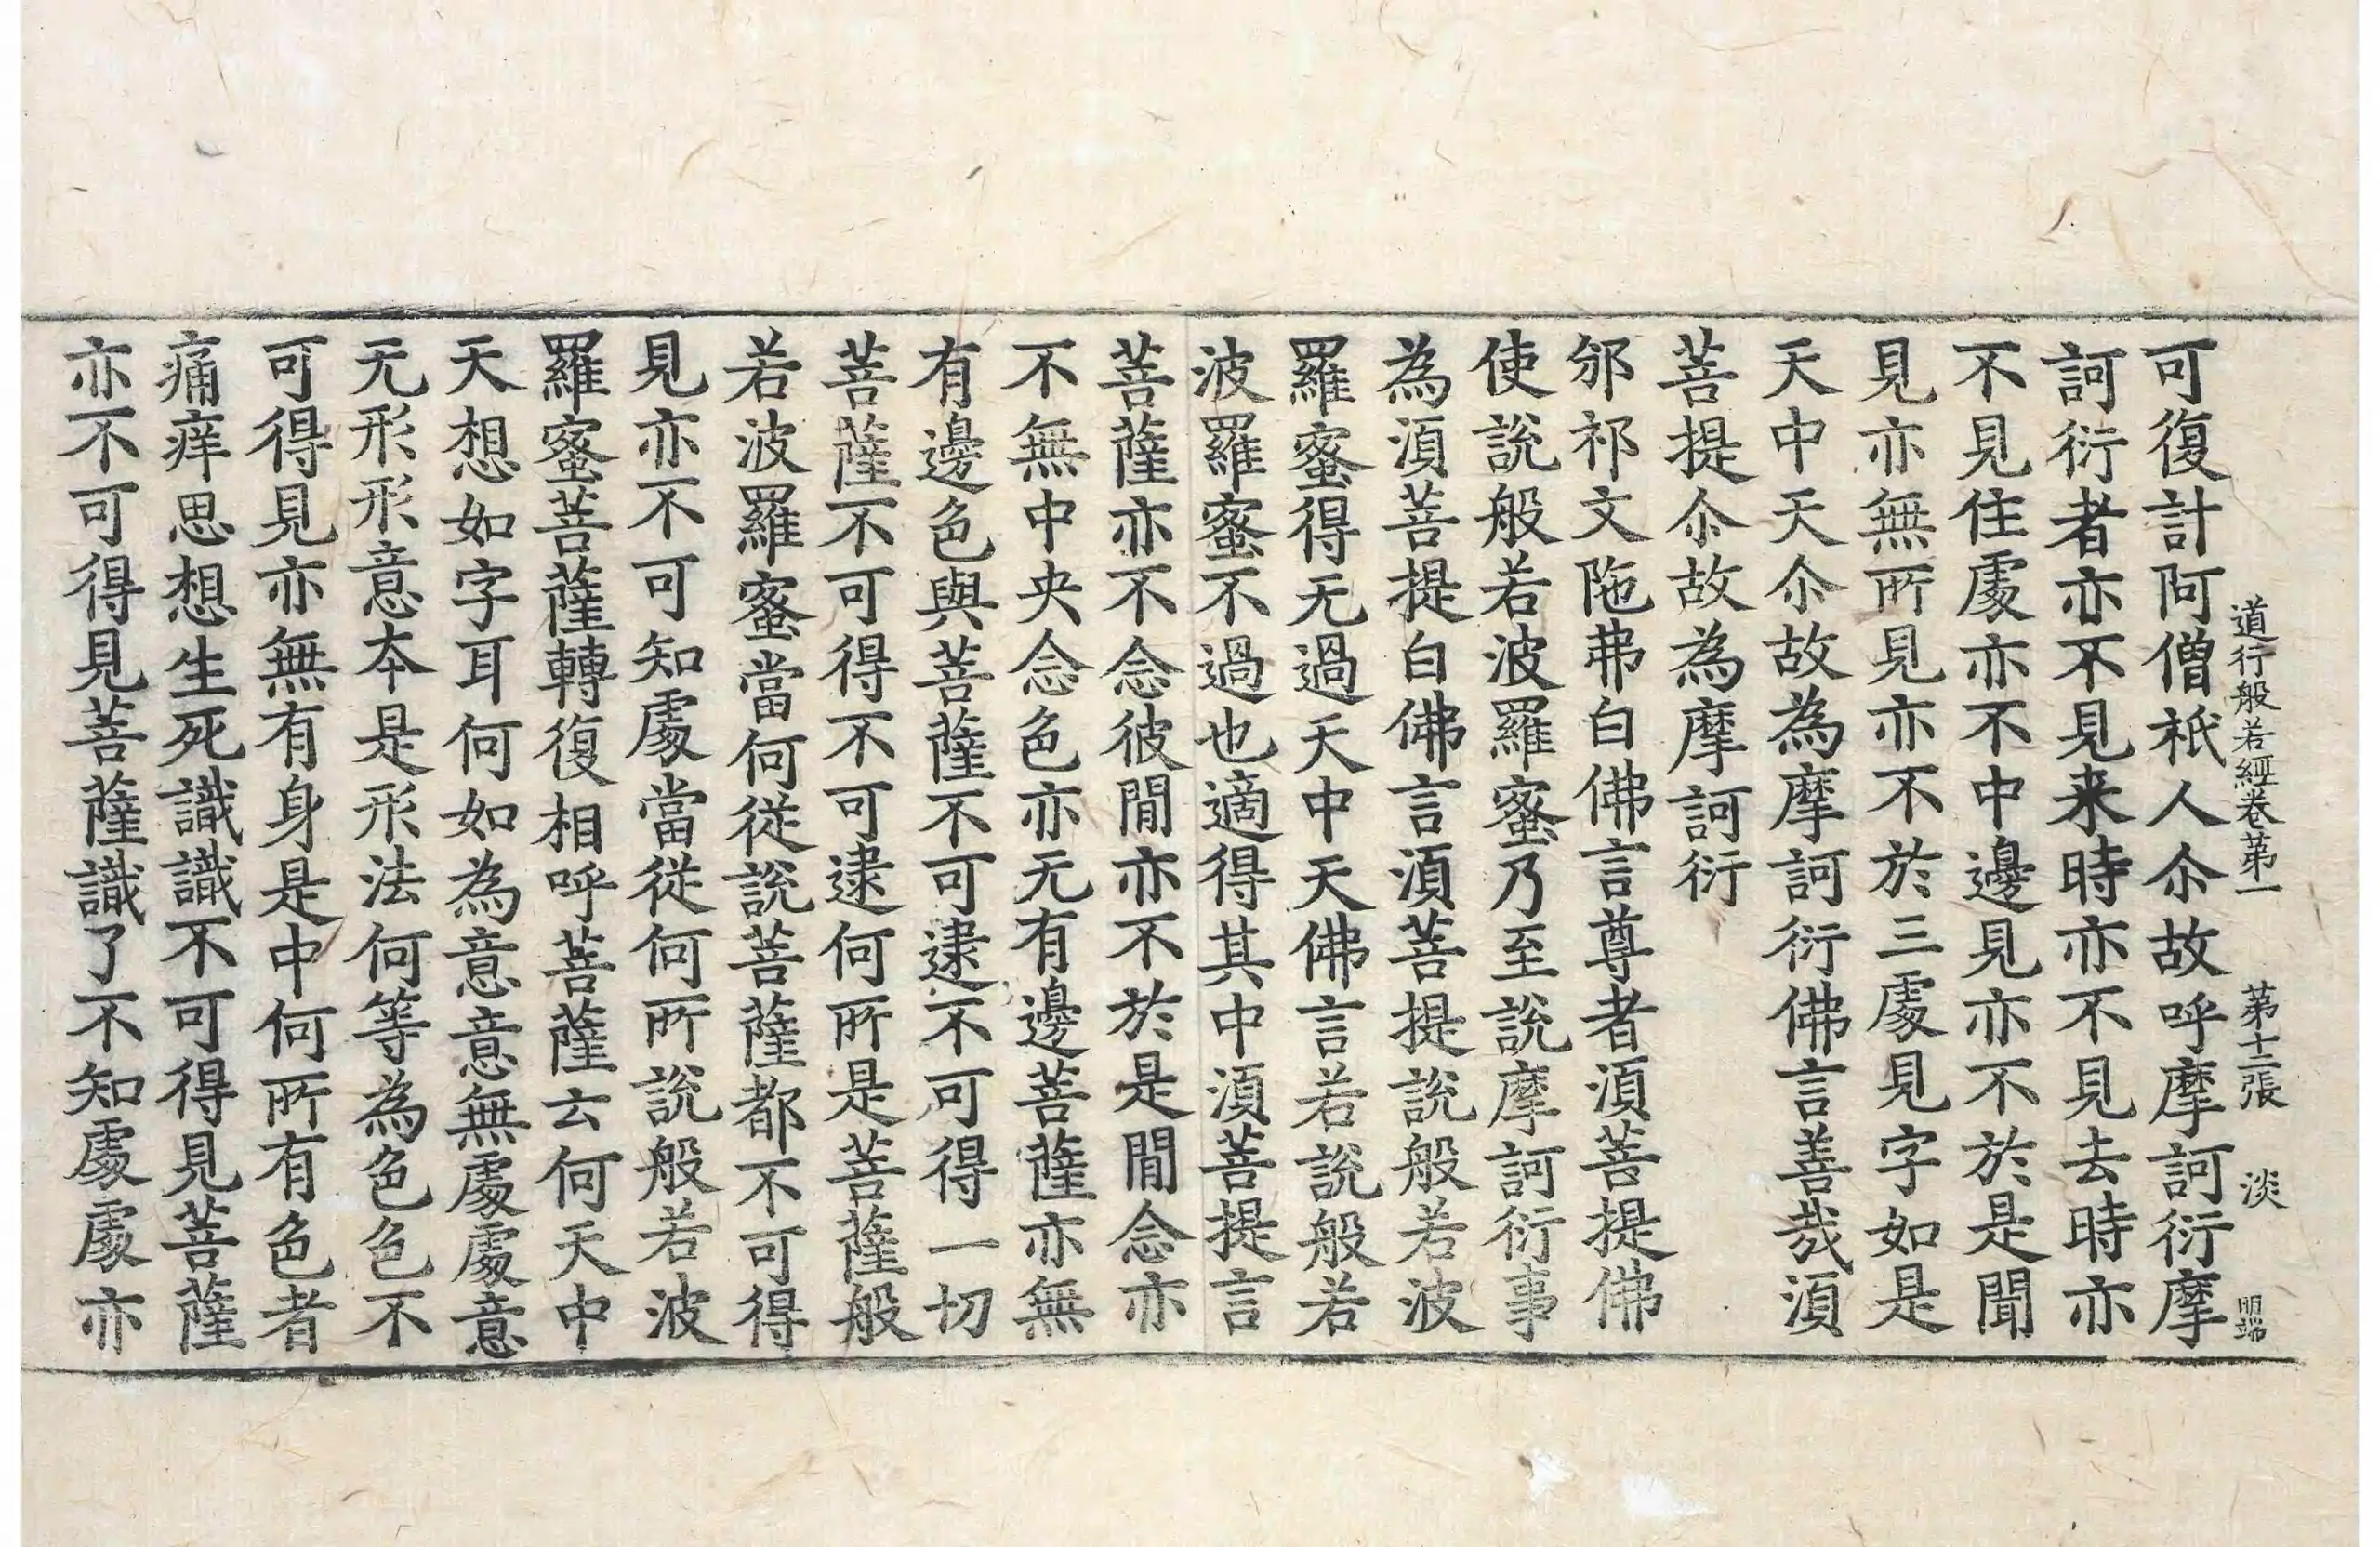 道行般若經卷第一 第十二張 淡 明端
可復計阿僧祇人尒故呼摩訶衍摩
訶衍者亦不見来時亦不見去時亦
不見住處亦不中邊見亦不於是聞
見亦無所見亦不於三處見字如是
天中天尒故為摩訶衍佛言善哉湏
菩提尒故為摩訶衍
邠祁文陁弗白佛言尊者湏菩提佛
使說般若波羅蜜乃至說摩訶衍事
為湏菩提白佛言湏菩提說般若波
羅蜜得无過天中天佛言若說般若
波羅蜜不過也適得其中湏菩提言
菩薩亦不念彼閒亦不於是閒念亦
不無中央念色亦无有邊菩薩亦無
有邊色與菩薩不可逮不可得一切
菩薩不可得不可逮何所是菩薩般
若波羅蜜當何從說菩薩都不可得
見亦不可知處當從何所說般若波
羅蜜菩薩轉復相呼菩薩云何天中
天想如字耳何如為意意無處處意
无形形意本是形法何等為色色不
可得見亦無有身是中何所有色者
痛痒思想生死識識不可得見菩薩
亦不可得見菩薩識了不知處處亦